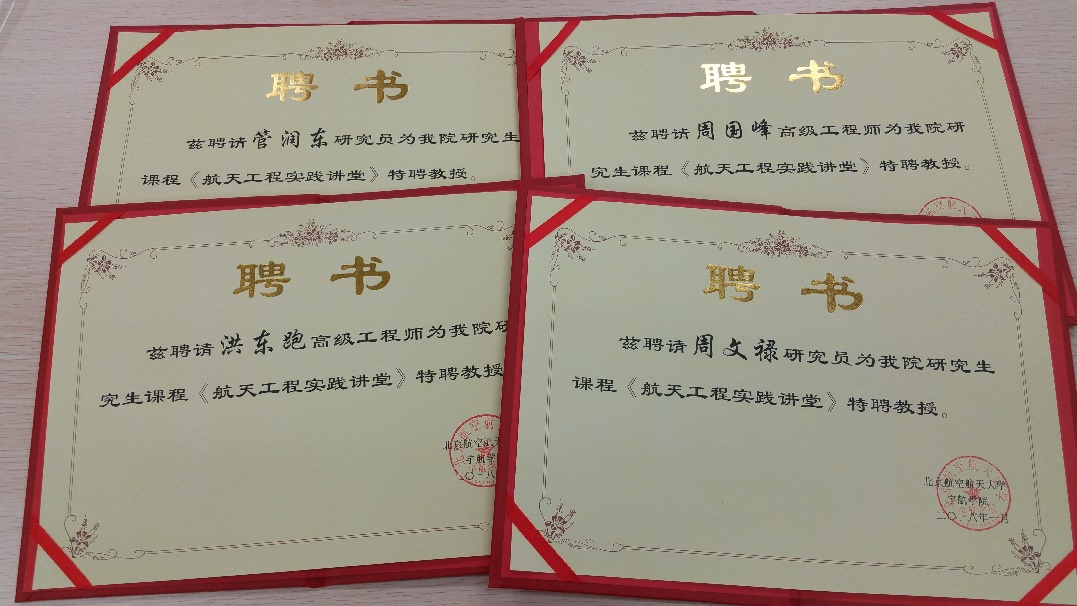 聘书
兹聘请管润东研究员为我院研究生
课程《航天工程实践讲堂》特聘教授。
聘书
兹聘请周国峰高级工程师为我院研
究生课程《航天工程实践讲堂》特聘教授。
聘书
兹聘请洪东跑高级工程师为我院研
究生课程《航天工程实践讲堂》特聘教授
北京航空航天
宇航学
二〇一八
聘书
兹聘请周文禄研究员为我院研究生
课程《航天工程实践讲堂》特聘教授。
北京航空航天大学
宇航学院
二〇一八年一月